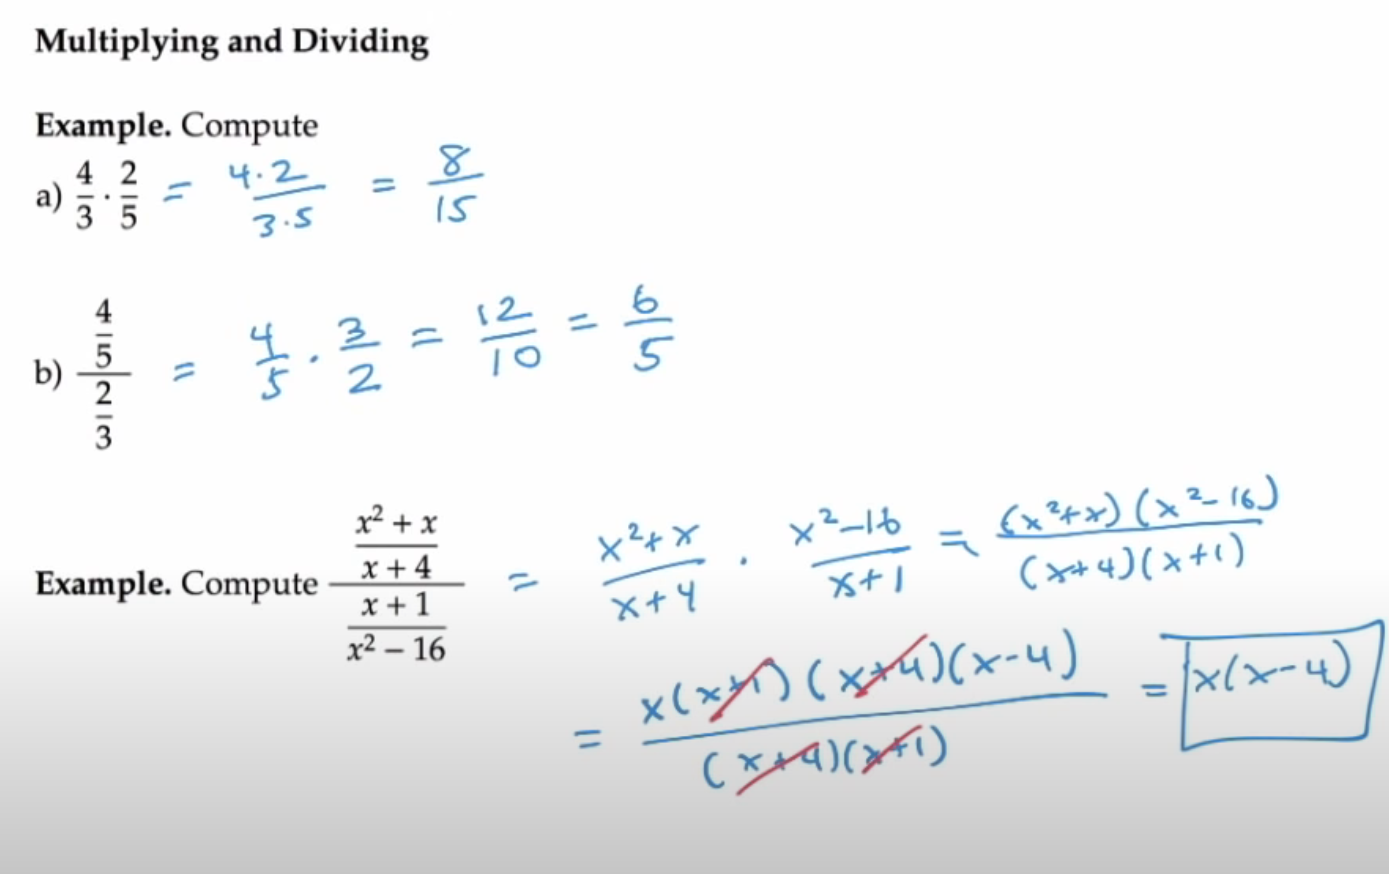 Multiplying and Dividing
Example. Compute
a) 4/3 · 2/5 = 4·2/3·5 = 8/15
b) 4/5 / 2/3 = 4/5 · 3/2 = 12/10 = 6/5
Example. Compute x² + x/x + 4 / x + 1/x² − 16 = x²+x/x+4 · x²-16/x+1 = (x²+x)(x²-16)/(x+4)(x+1)
= x(x+1)(x+4)(x-4)/(x+4)(x+1) = x(x-4)